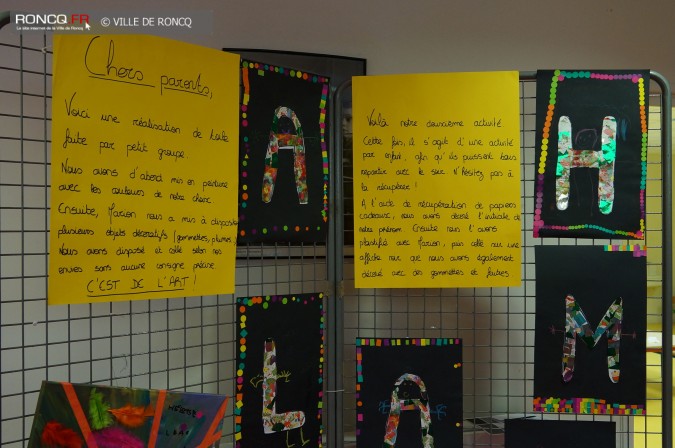 RONCQ.FR
Le site internet de la Ville de Roncq
© VILLE DE RONCQ
Chers parents,
Voici une réalisation de toile
faite par petit groupe.
Nous avons d'abord mis en peinture
avec les couleurs de notre choix.
Ensuite, Marion nous a mis à disposition
plusieurs objets décoratifs (gommettes, plumes,
Nous avons disposé et collé selon nos
envies sans aucune consigne précise.
C'EST DE L'ART !
Voilà notre deuxième activité.
Cette fois, il s'agit d'une activité
par enfant, afin qu'ils puissent tous
repartir avec le leur. N'hésitez pas à
la récupérer !
A l'aide de récupération de papiers
cadeaux, nous avons décoré l'initiale de
notre prénom. Ensuite nous l'avons
plastifié avec Marion, puis collé sur une
affiche noir que nous avons également
décoré avec des gommettes et feutres.
A
H
L
A
M